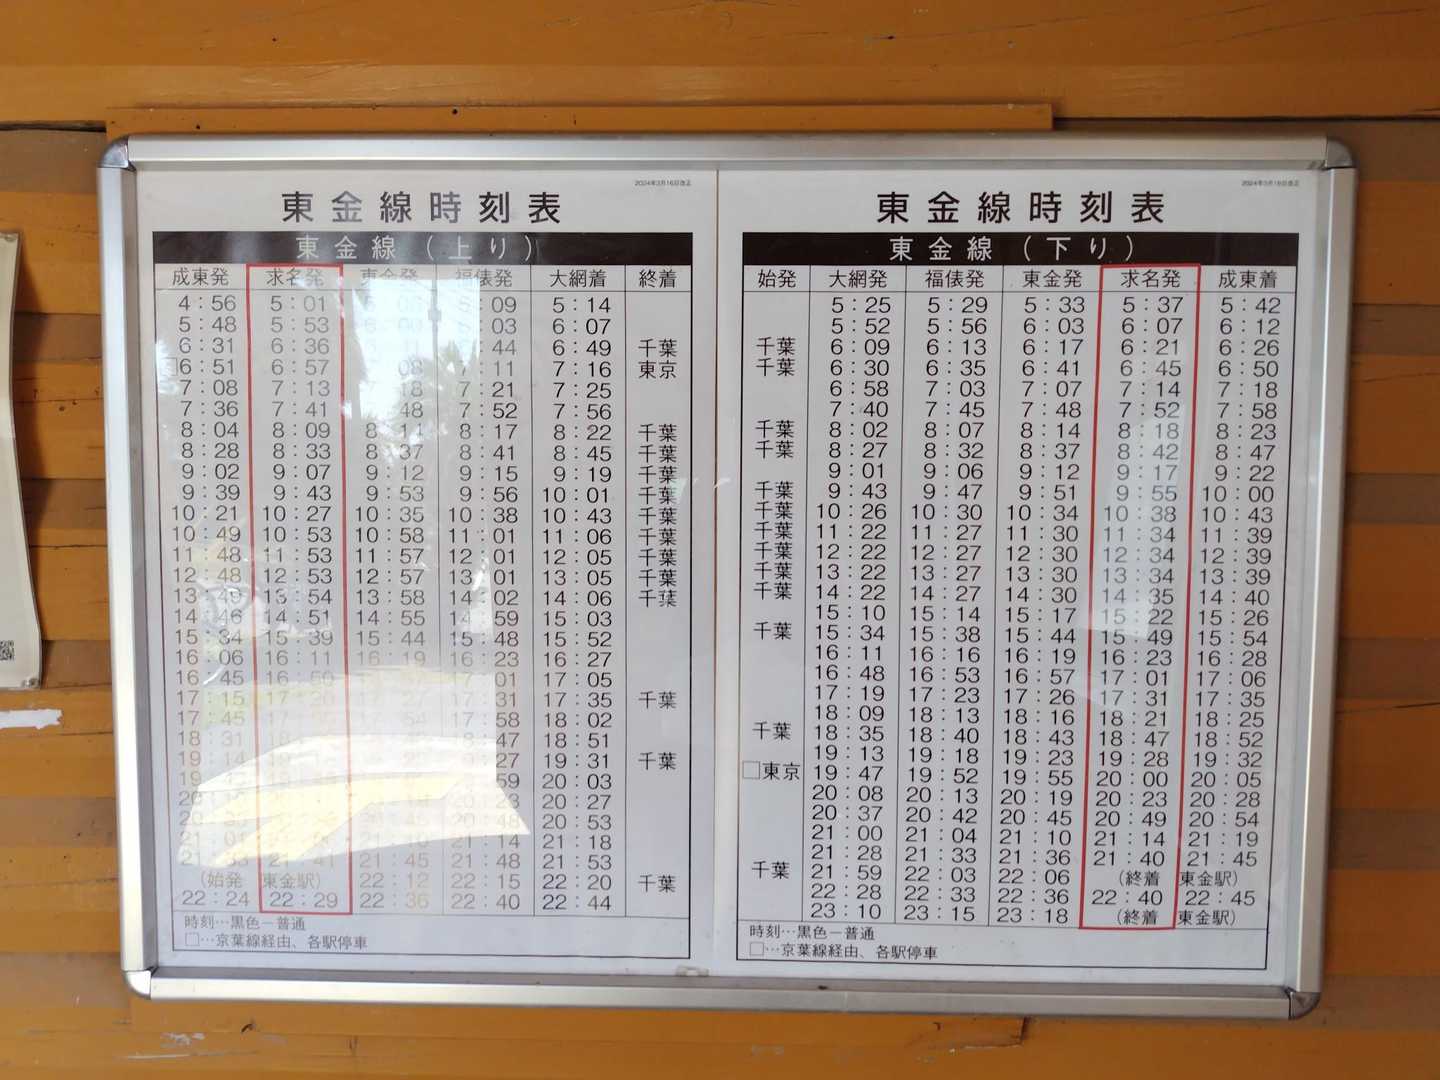 2024年3月16日改正
東金線時刻表
東金線(上り)
成東発 求名発 東金発 福俵発 大網着 終着
4:56 5:01 5:09 5:14
5:48 5:53 6:07
6:31 6:36 6:49 千葉
□6:51 6:57 7:11 7:16 東京
7:08 7:13 7:21 7:25
7:36 7:41 7:52 7:56
8:04 8:09 8:14 8:17 8:22 千葉
8:28 8:33 8:37 8:41 8:45 千葉
9:02 9:07 9:12 9:15 9:19 千葉
9:39 9:43 9:53 9:56 10:01 千葉
10:21 10:27 10:35 10:38 10:43 千葉
10:49 10:53 10:58 11:01 11:06 千葉
11:48 11:53 11:57 12:01 12:05 千葉
12:48 12:53 12:57 13:01 13:05 千葉
13:49 13:54 13:58 14:02 14:06 千葉
14:46 14:51 14:55 14:59 15:03
15:34 15:39 15:44 15:48 15:52
16:06 16:11 16:19 16:23 16:27
16:45 16:50 17:01 17:05
17:15 17:20 17:27 17:31 17:35 千葉
17:45 17:54 17:58 18:02
18:31 18:47 18:51
19:14 19:27 19:31 千葉
19:59 20:03
20:23 20:27
20:45 20:48 20:53
21:01 21:10 21:14 21:18
21:41 21:45 21:48 21:53
(始発 東金駅) 22:12 22:15 22:20 千葉
22:24 22:29 22:36 22:40 22:44
時刻…黒色－普通
□…京葉線経由、各駅停車
2024年3月16日改正
東金線時刻表
東金線(下り)
始発 大網発 福俵発 東金発 求名発 成東着
5:25 5:29 5:33 5:37 5:42
5:52 5:56 6:03 6:07 6:12
千葉 6:09 6:13 6:17 6:21 6:26
千葉 6:30 6:35 6:41 6:45 6:50
6:58 7:03 7:07 7:14 7:18
7:40 7:45 7:48 7:52 7:58
千葉 8:02 8:07 8:14 8:18 8:23
千葉 8:27 8:32 8:37 8:42 8:47
9:01 9:06 9:12 9:17 9:22
千葉 9:43 9:47 9:51 9:55 10:00
千葉 10:26 10:30 10:34 10:38 10:43
千葉 11:22 11:27 11:30 11:34 11:39
千葉 12:22 12:27 12:30 12:34 12:39
千葉 13:22 13:27 13:30 13:34 13:39
千葉 14:22 14:27 14:30 14:35 14:40
15:10 15:14 15:17 15:22 15:26
千葉 15:34 15:38 15:44 15:49 15:54
16:11 16:16 16:19 16:23 16:28
16:48 16:53 16:57 17:01 17:06
17:19 17:23 17:26 17:31 17:35
18:09 18:13 18:16 18:21 18:25
千葉 18:35 18:40 18:43 18:47 18:52
19:13 19:18 19:23 19:28 19:32
□東京 19:47 19:52 19:55 20:00 20:05
20:08 20:13 20:19 20:23 20:28
20:37 20:42 20:45 20:49 20:54
21:00 21:04 21:10 21:14 21:19
21:28 21:33 21:36 21:40 21:45
千葉 21:59 22:03 22:06 (終着 東金駅)
22:28 22:33 22:36 22:40 22:45
23:10 23:15 23:18 (終着 東金駅)
時刻…黒色－普通
□…京葉線経由、各駅停車